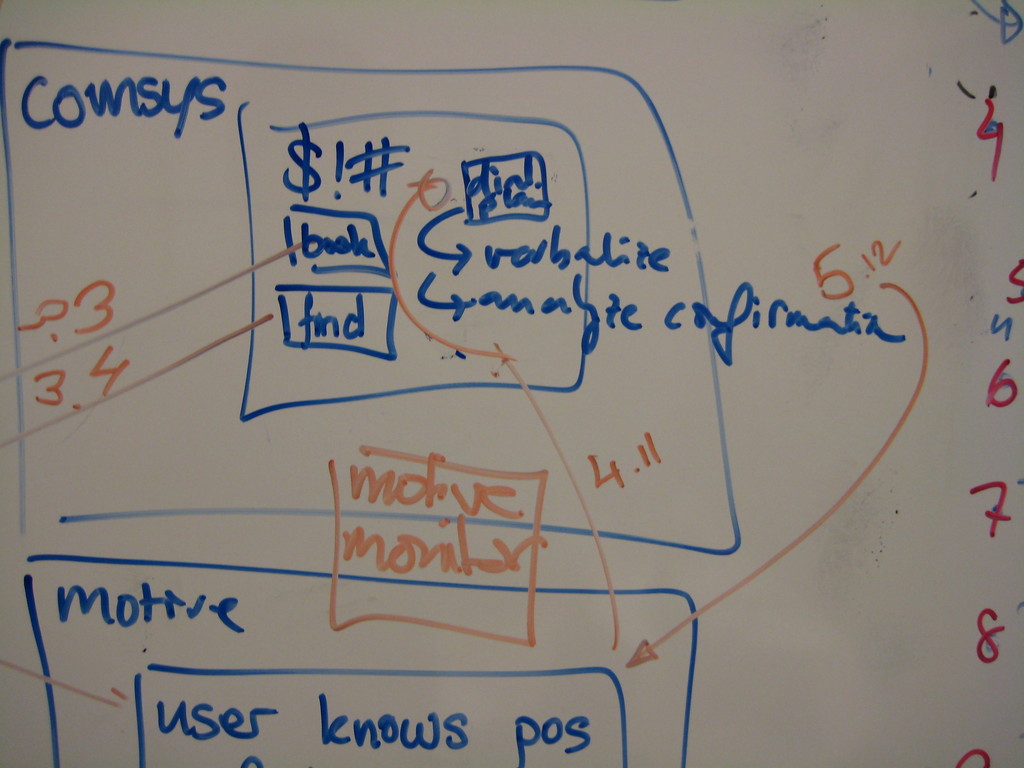 comsys
$!#
book
dial. plan
verbalize
find
analyze confirmation
?.3
3.4
5.12
4.11
motive
monitor
motive
user knows pos
4
5
4
6
7
8